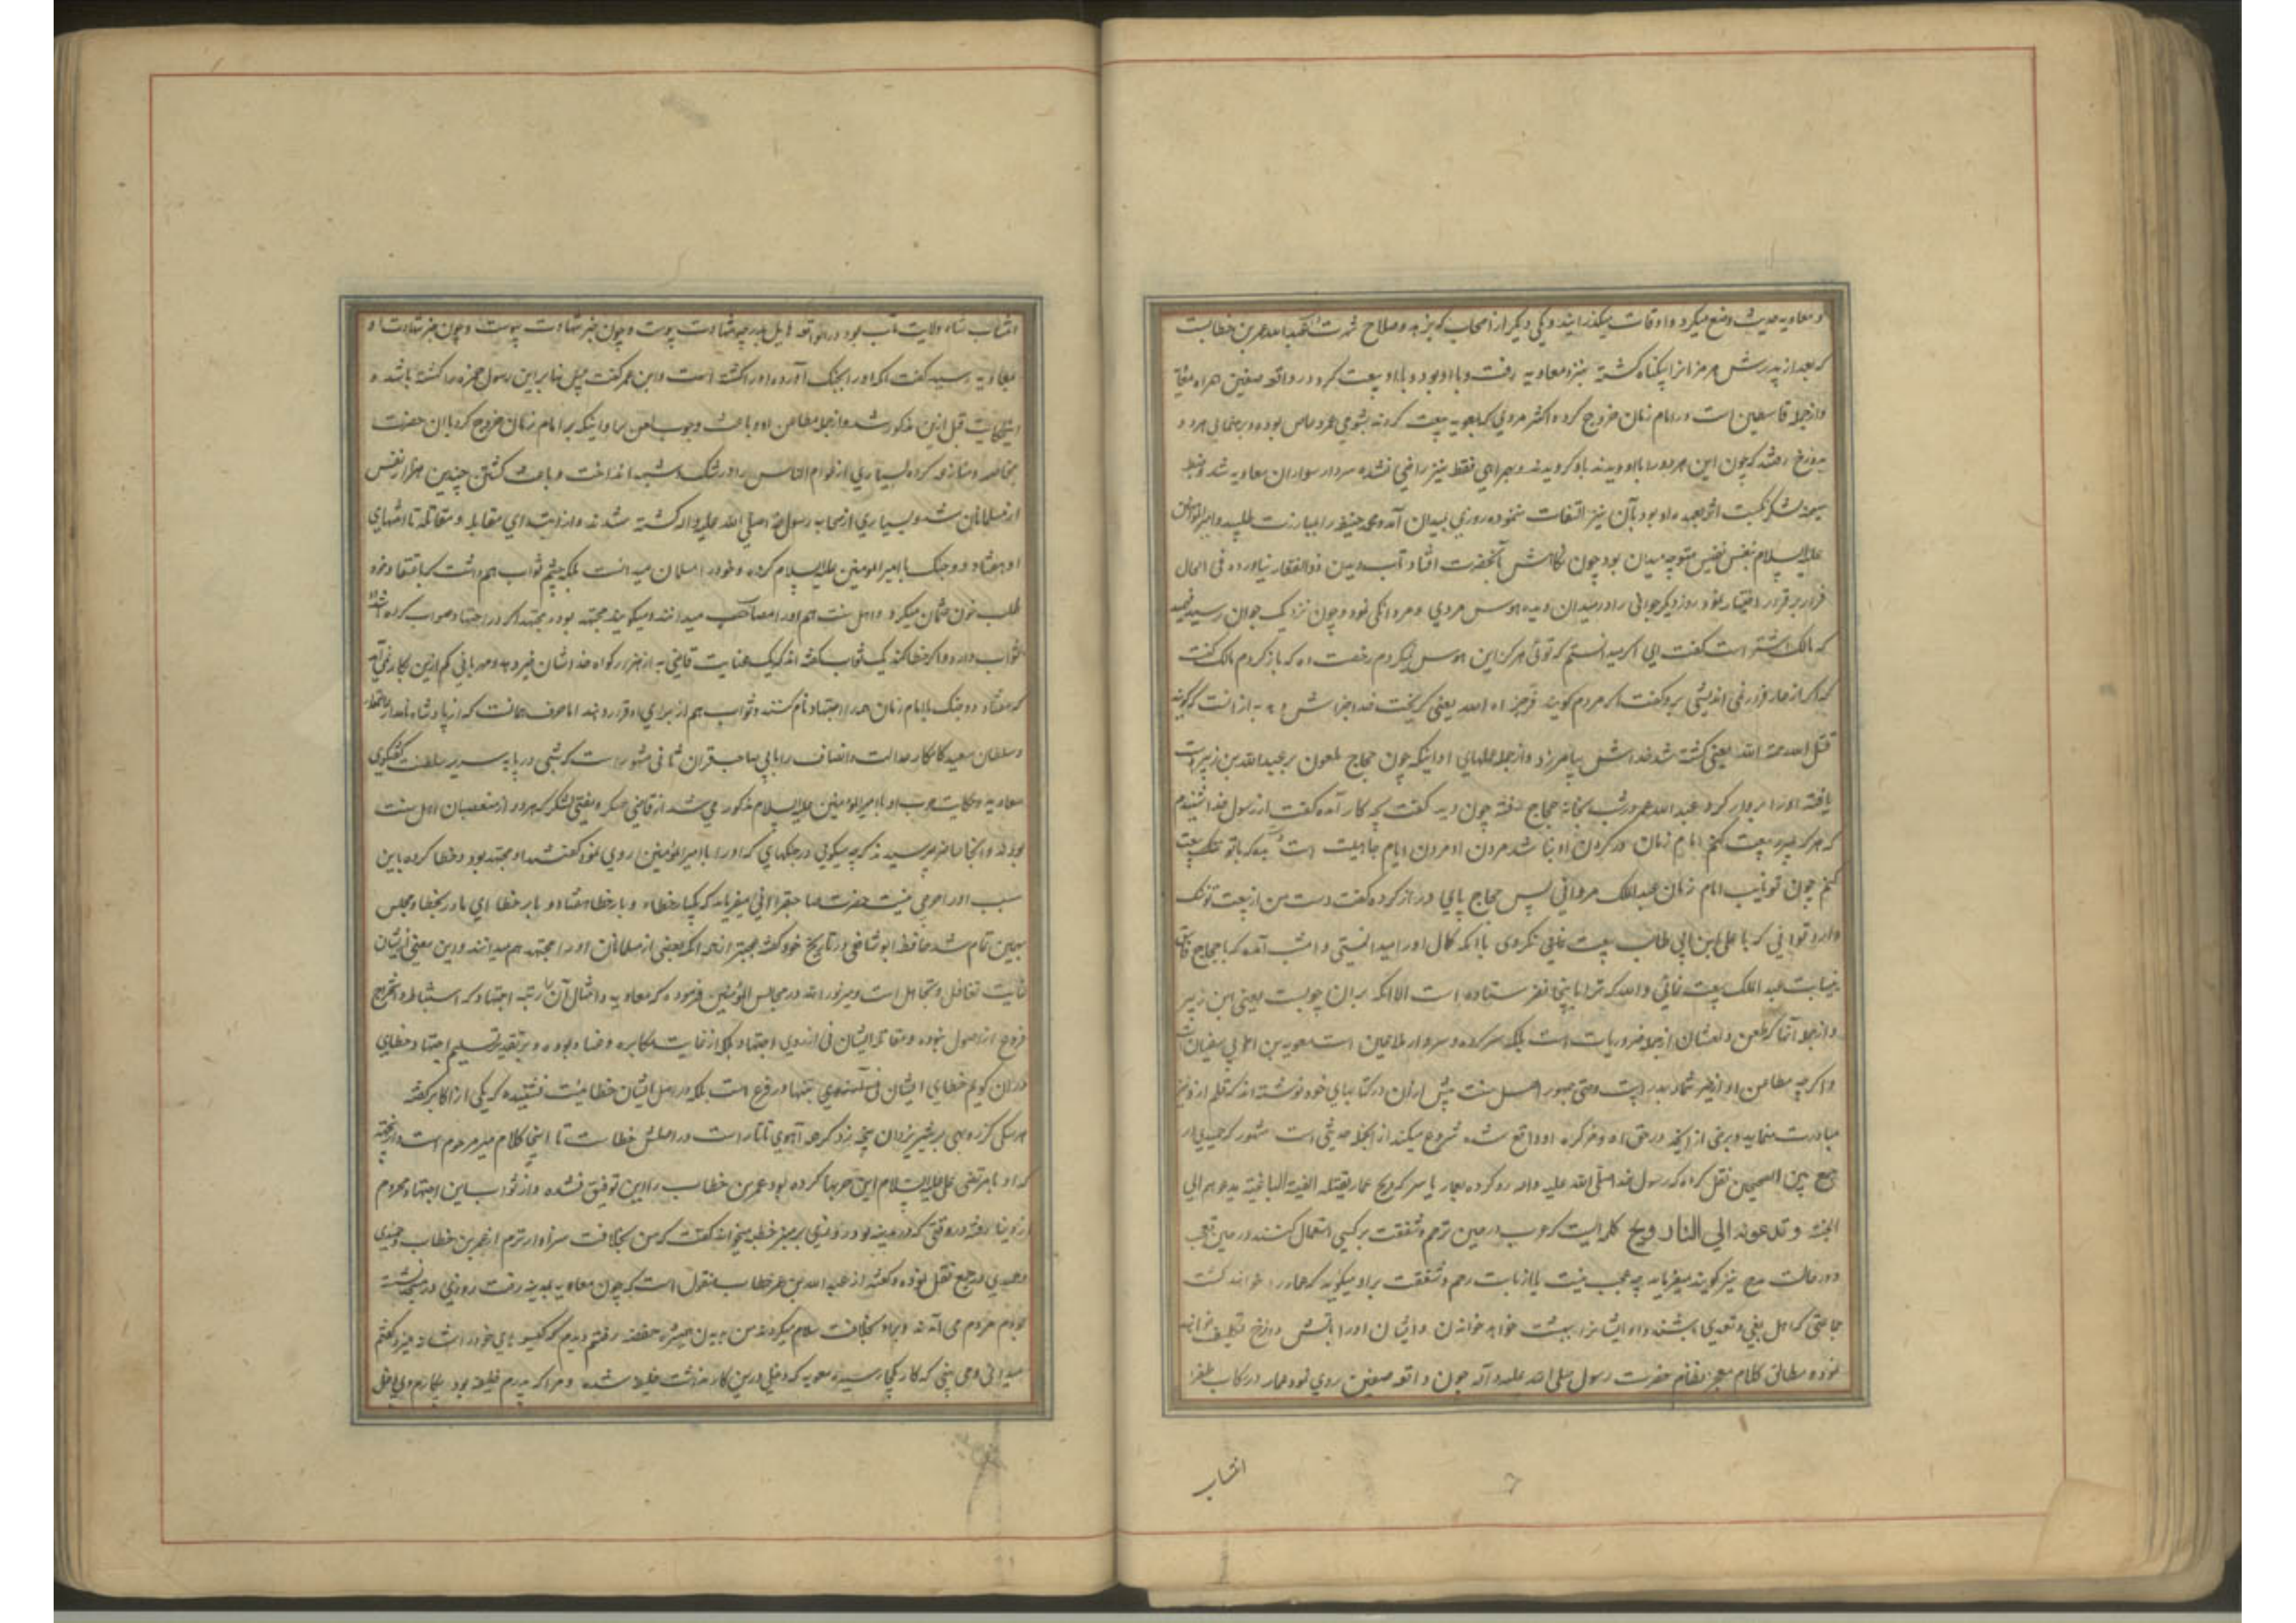 و معاویه حدیث وضع میکرد و اوقات میگذرانید و یکی دیگر از اصحاب که بزهد و صلاح شهرت عبدالله عمر بن خطابست
که بعد از پدرش هرمزانرا بیگناه کشته بنزد معاویه رفت و با او بود و با او بیعت کرد و در واقعه صفین همراه
و از جمله قاسطین است و بر امام زمان خروج کرده اکثر مردمی که بمعویه بیعت کردند بشومی عمرو عاص بوده و برهنمائی هر دو
بدوزخ رفتند که چون این هر دو را با او دیدند باو گرویدند و بهمراهی فقط نیز راضی نشده سردار سواران معاویه شد و ضبط
میمنه لشکر نکبت اثر بعهده او بود بآن نیز اتفات ننموده روزی بمیدان آمد و محمد حنیفه را بمبارزت طلبید و امیرالمؤمنین
علیه السلام بنفس نفیس متوجه میدان بود چون نکاهش بآنحضرت افتاد تاب دیدن ذوالفقار نیاورده فی الحال
فرار بر قرار اختیار نمود روز دیکر جوانی را در میدان دیده هوس مردی و مردانکی نمود و چون نزدیک جوان رسید فهمید
که مالک اشتر است کفت ای اکر میدانستم که توئی هرکز این هوس نمیکردم رخصت ده که باز کردم مالک کفت
که اکر از عار فرار نمی اندیشی برو کفت اکر مردم کویند فر جزاه الله یعنی کریخت خدا جزایش دهد به از انست که کویند
قتل رحمه الله یعنی کشته شد خداش بیامرزد و از جمله عملهای او اینکه چون حجاج ملعون بر عبدالله بن زبیر دست
یافته او را بردار کرد عبدالله عمر در شب بخانه حجاج رفته چون دید کفت بچه کار آمده کفت از رسول خدا شنیدم
که هرکه بمیرد و بیعت بکنم امام زمان در کردن او نباشد مردن او مردن ایام جاهلیت است بده که باتو بیعت
کنم چون تو نایب امام زمان عبدالملک مروانی پس حجاج پای دراز کرده کفت دست من از بیعت تو ننک
دارد توانی که با علی ابن ابی طالب بیعت نمائی نکردی با آنکه کمال او را میدانستی و امشب آمده که با حجاج
بنیابت عبد الملک بیعت نمائی والله که ترا باینجا نفرستاده است الا انکه بران چوبست یعنی ابن زبیر
و از جمله آنها که طعن و لعنشان از جمله ضروریات است بلکه سرکرده و سردار ملاعین است معویه بن ابی سفیان است
و اکرچه مطاعن او از حیز شمار بدر است و حتی جمهور اهل سنت بیش از ان در کتابهای خود نوشته اند که قلم از نیز
مبادرت نماید و برخی از آنچه در حق او و کرده او واقع شده شروع میکند از انجمله حدیثی است مشهور که حمیدی در
جمع بین الصحیحین نقل کرده که رسول خدا صلی الله علیه و اله رو کرده بعمار یاسر که ویح عمار یقتله الفئة الباغیة یدعوهم الی
الجنة و تدعونه الی النار ویح کلمه ایست که عرب در حین ترحم و شفقت بر کسی استعمال کنند و در حین تعجب
و در حالت مدح نیز کویند میفرماید چه عجب نیست یا از بابت رحم و شفقت بر او میکوید که عمار را خواهند کشت
جماعتی که اهل بغی و تعدی باشند و او ایشانرا ببهشت خواهد خواندن و ایشان او را بآتش دوزخ تکلیف خواهند
نموده مطابق کلام معجز نظام حضرت رسول صلی الله علیه و آله چون واقعه صفین روی نمود عمار در رکاب ظفر
انتساب
انتساب شاه ولایت مآب بود در انواقعه بدرجه شهادت پیوست و چون خبر شهادت او
بمعاویه رسید کفت آنکه او را بجنک آورده او را کشته است و ابن عمر کفت پس بنابراین رسول حمزه را کشته باشد و
اینحکایت قبل ازین مذکور شد و از جمله مطاعن او و باعث وجوب لعن برا و اینکه بر امام زمان خروج کرد با ان حضرت
مخاصمه و منازعه کرده بسیاری از عوام الناس را در شک و شبهه انداخت و باعث کشتن چندین هزار نفس
از مسلمانان شد و بسیاری از صحابه رسول خدا صلی الله علیه و اله کشته شدند و از ابتدای مقابله و مقاتله تا انتهای
او هفتاد و دو جنک با امیرالمومنین علیه السلام کرده و خود را مسلمان میدانست بلکه چشم ثواب هم داشت که باعتقاد خود
طلب خون عثمان میکرد و اهل سنت هم او را مصاحب میدانند و میکویند مجتهد بود و مجتهد اکر در اجتهاد صواب کرده باشد
ثواب دارد و اکر خطا کند یک ثواب کفته اند که یک عنایت قاضی به از هزار کواه خدا ایشان خیر دهد و مهربانی کم ازین بکار نمی آید
که هفتاد و دو جنک با امام زمان را اجتهاد نام کنند و ثواب هم از برای او قرار دهند اما حرف همانست که از پادشاه نامدار
و سلطان سعید کامکار عدالت و انصاف را بانی صاحبقران ثانی مشهور است که شبی در پایه سریر سلطنت کفتکوی
معاویه و حکایت حرب او با امیرالمومنین علیه السلام مذکور می شد از قاضی عسکر و مفتی لشکر که هر دو از متعصبان اهل سنت
بودند و انجا حاضر پرسیدند که چه میکوئی در جنکهای که او را با امیرالمؤمنین روی نمود کفتند او مجتهد بود و خطا کرده باین
سبب او را حرجی نیست حضرت صاحبقرانی میفرماید که یکبار خطا و دو بار خطا هفتاد و دو بار خطا ای مادر بخطا و مجلس
بهمین تمام شد حافظ ابروشافعی در تاریخ خود کفته عجبتر از همه آنکه بعضی از مسلمانان او را مجتهد هم میدانند و این معنی ازیشان
غایت تغافل و تجاهل است و میر نور الله در مجالس المؤمنین فرموده که معاویه و امثال آن را رتبه اجتهاد که استنباط و استخراج
فروع از اصول نبوده و مقاتله ایشان نه از روی اجتهاد بلکه از غایت مکابره و عناد بوده و بر تقدیر تسلیم اجتهاد و خطای
در ان کویم خطای ایشان تنها در فرع است بلکه در اصل ایشان خطا نیست نشنیده که یکی از اکابر کفته
هر سکی کز روبهی بر شیر یزدان پنجه زد کرچه آهوی تاتار است در اصلش خطا ست تا اینجا کلام میر مرحوم است
که او با مرتضی علی علیه السلام این حربها کرده بود عمر بن خطاب را این توفیق نشده و از ثواب این اجتهاد محروم
از دنیا رفته در وقتی که در مدینه بود روزی بر منبر خطبه میخواند کفت که من بخلافت سزاوارترم از عمر بن خطاب
و حمیدی در جمع نقل نموده و کفته از عبد الله بن عمر خطاب منقول است که چون معاویه بمدینه رفت روزی در مسجد نشسته
بودم مردم می آمدند و بر او بخلافت سلام میکردند من بدیدن همشیره حفصه رفتم دیدم که کیسوهای خود را شانه میزد کفتم
میدانی و می بینی که کار بکجا رسیده معویه که دخلی درین کار نداشت خلیفه شده و مرا که پدرم خلیفه بود بکارم دخل